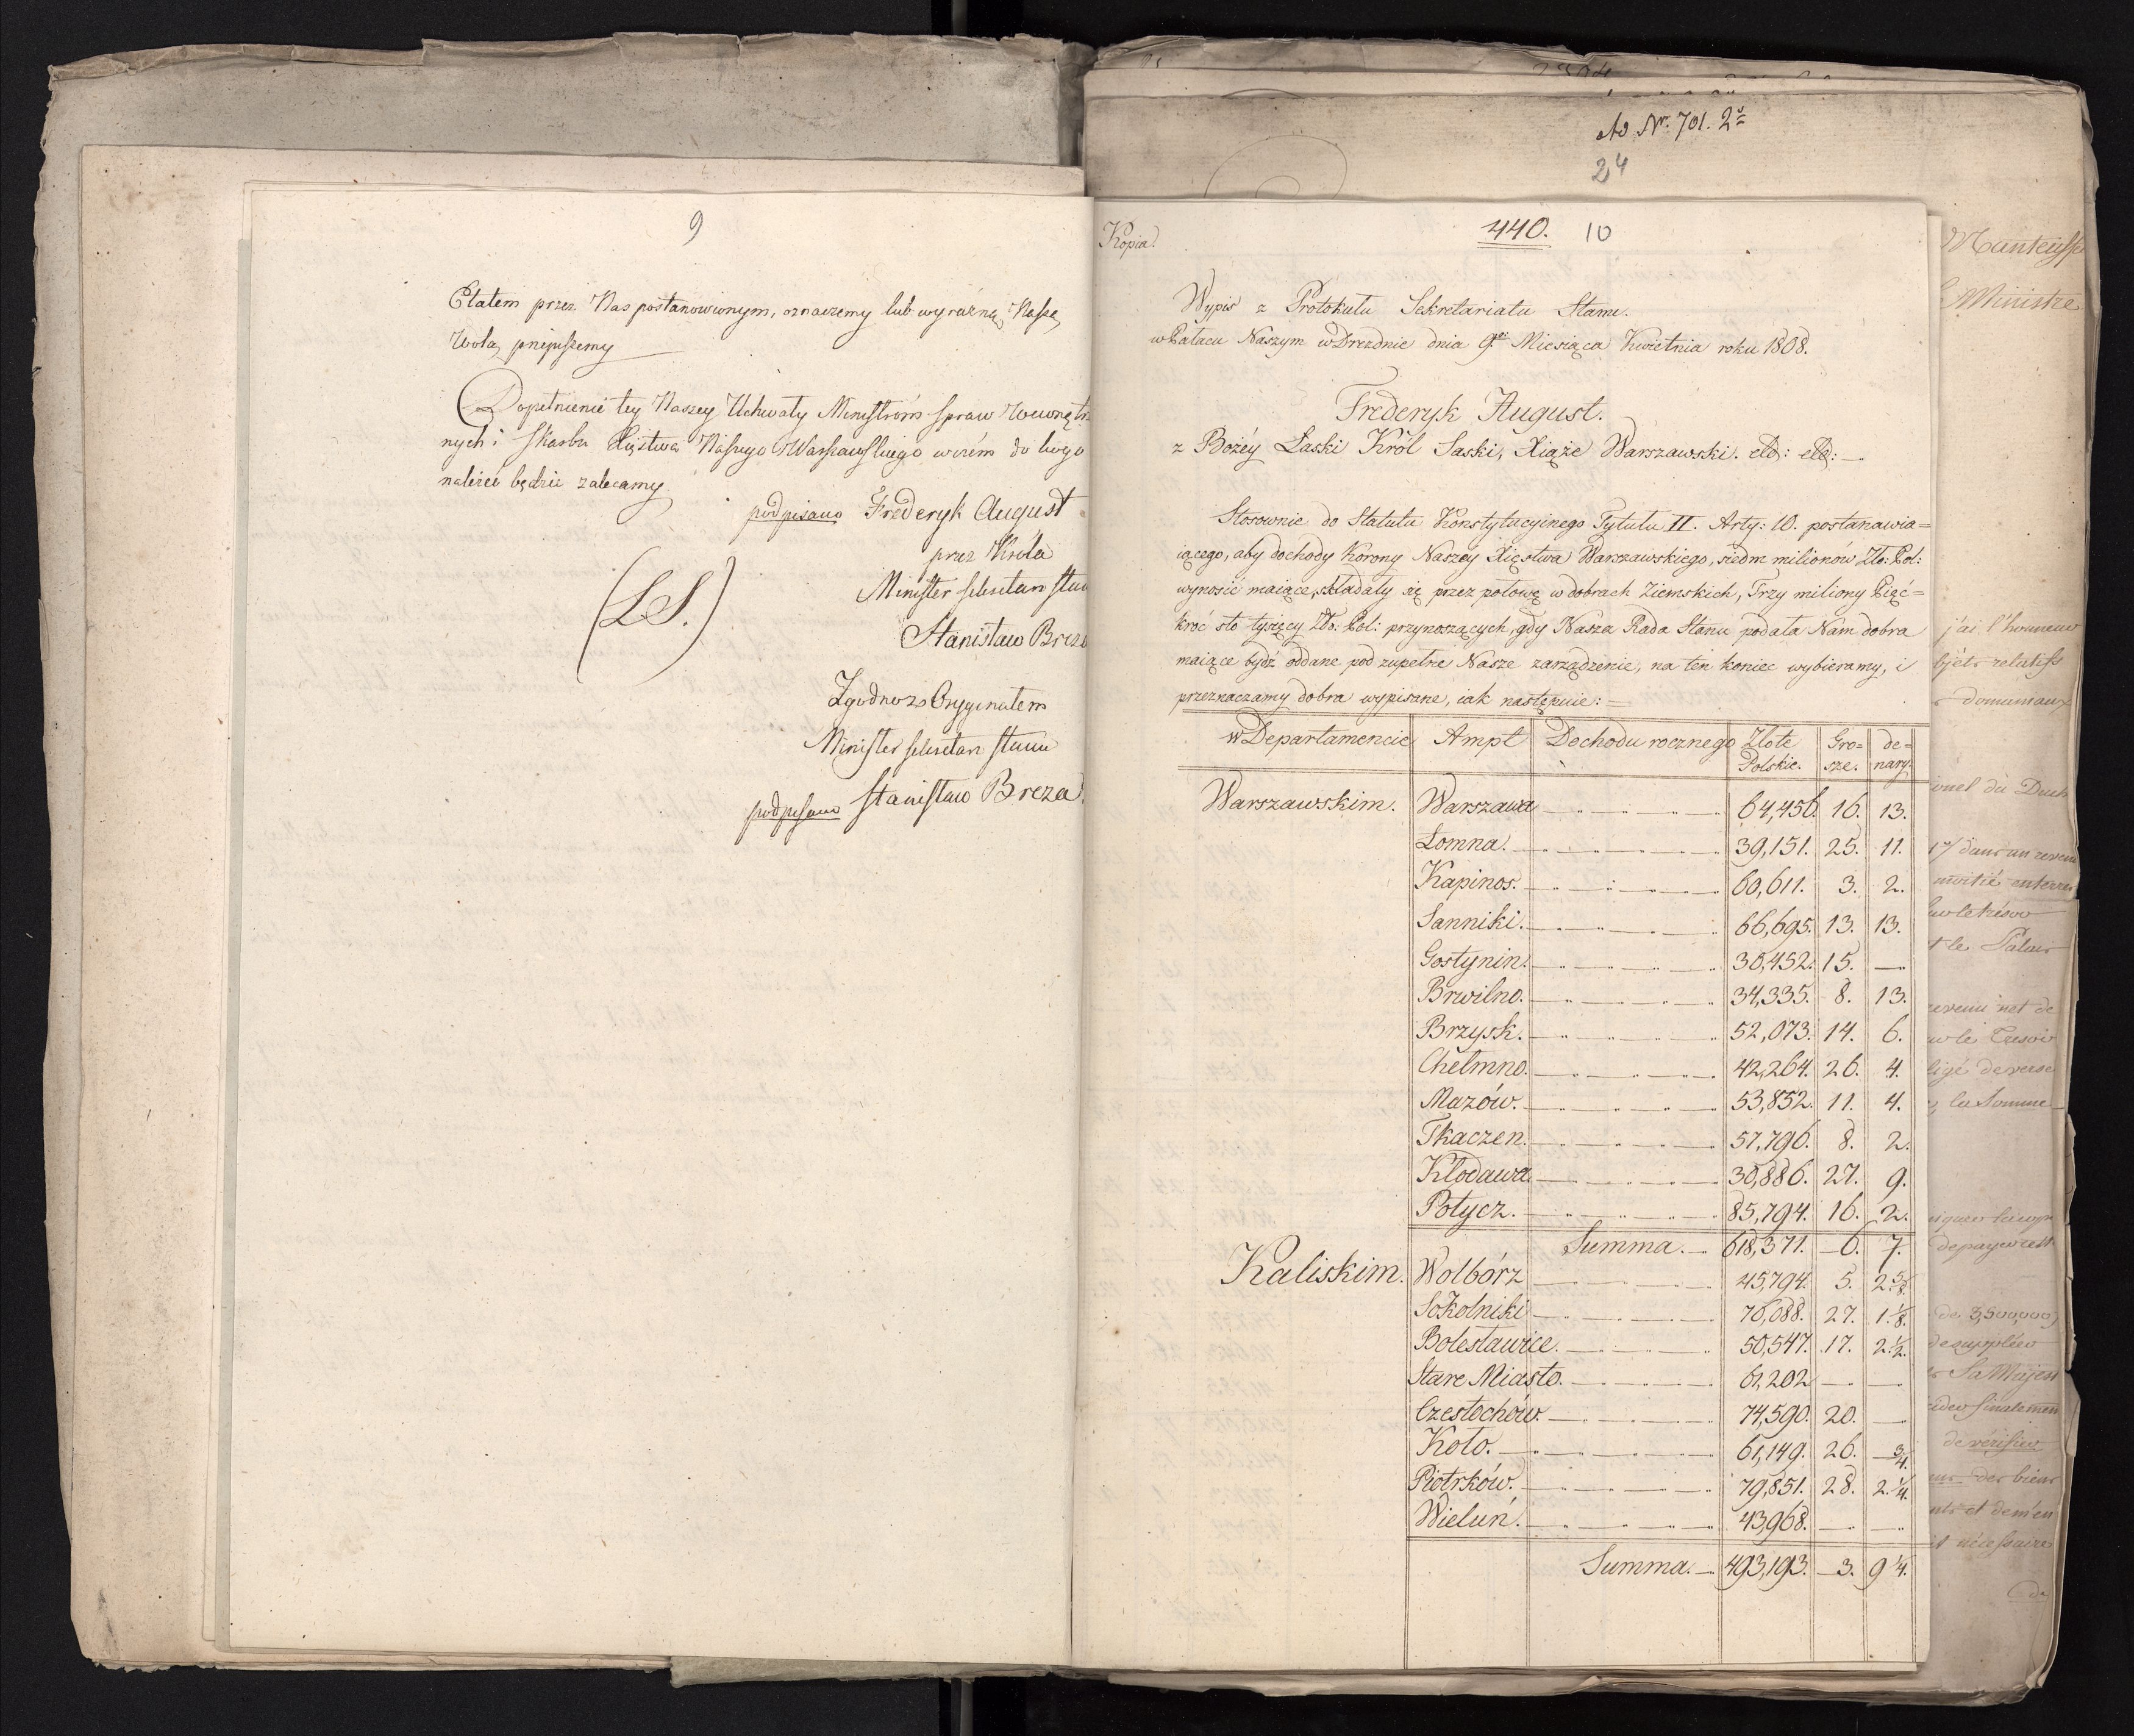 9
Etatem przez Nas postanowionym, oznaczemy lub wyraźną Naszą
Wolą przepiszemy
Dopełnienie tey Naszey Uchwały Ministróm Spraw Wewnętrz
nych i Skarbu Xięstwa Naszego Warszawskiego wczém do kogo
należeć będzie zalecamy
podpisano Frederyk August
przez Króla
Minister Sekretarz Stanu
(LS.)
Stanisław Breza
Zgodno z Oryginałem
Minister Sekretarz Stanu
podpisano Stanisław Breza.
Ad Nr. 701. 2
24
Kopia.
440. 10
Wypis z Protokułu Sekretariatu Stanu.
w Pałacu Naszym w Dreznie dnia 9go Miesiąca Kwietnia roku 1808.
Frederyk August.
z Bożéy Łaski Król Saski, Xiąże Warszawski. etc: etc: —
Stosownie do Statutu Konstytucyinego Tytułu II. Arty: 10. postanawia=
iącego, aby dochody Korony Naszey Xięstwa Warszawskiego, siedm milionów Zło: Pol:
wynosić maiące, składały się przez połowę w dobrach Ziemskich, Trzy miliony Pięć=
kroć sto tysięcy Zło: Pol: przynoszących, gdy Nasza Rada Stanu podała Nam dobra
maiące bydź oddane pod zupełne Nasze zarządzenie, na ten koniec wybieramy, i
przeznaczamy dobra wypisane, iak następuie: =
w Departamencie Ampt Dochodu rocznego Złote Polskie. Gro=sze. de=nary.
Warszawskim. Warszawa 64,456. 16. 13.
Łomna. 39,151. 25. 11.
Kapinos. 60,611. 3. 2.
Sanniki. 66,695. 13. 13.
Gostynin. 30,452. 15. —
Brwilno. 34,335. 8. 13.
Brzysk. 52,073. 14. 6.
Chełmno. 42,264. 26. 4.
Mazów. 53,852. 11. 4.
Tkaczen. 57,796. 8. 2.
Kłodawa 30,886. 27. 9.
Potycz. 85,794. 16. 2.
Summa. — 618,371. — 6. 7.
Kaliskim. Wolbórz 45,794. 5. 2 5/8.
Sokolniki 76,088. 27. 1. 1/8.
Bolesławice. 50,547. 17. 2. 1/2.
Stare Miasto. 61,202 — —
Czestochów. 74,590. 20. —
Koło. 61,149. 26. — 3/4.
Piotrków. 79,851. 28. 2. 1/4.
Wieluń. 43,968. — —
Summa. — 493,193. — 3. 9 1/4.
Manteuffe
Ministre
j'ai l'honneur
bjets relatifs
domaniaux
onel du Duch
dans un revenu
moitié en terres
et le Palais
revenu net de
ligé de verse
la Somme
de payer cett
de 3,500,000
Sa Majest
de vérifier
des biens
nts et dem'en
nécessaire
de